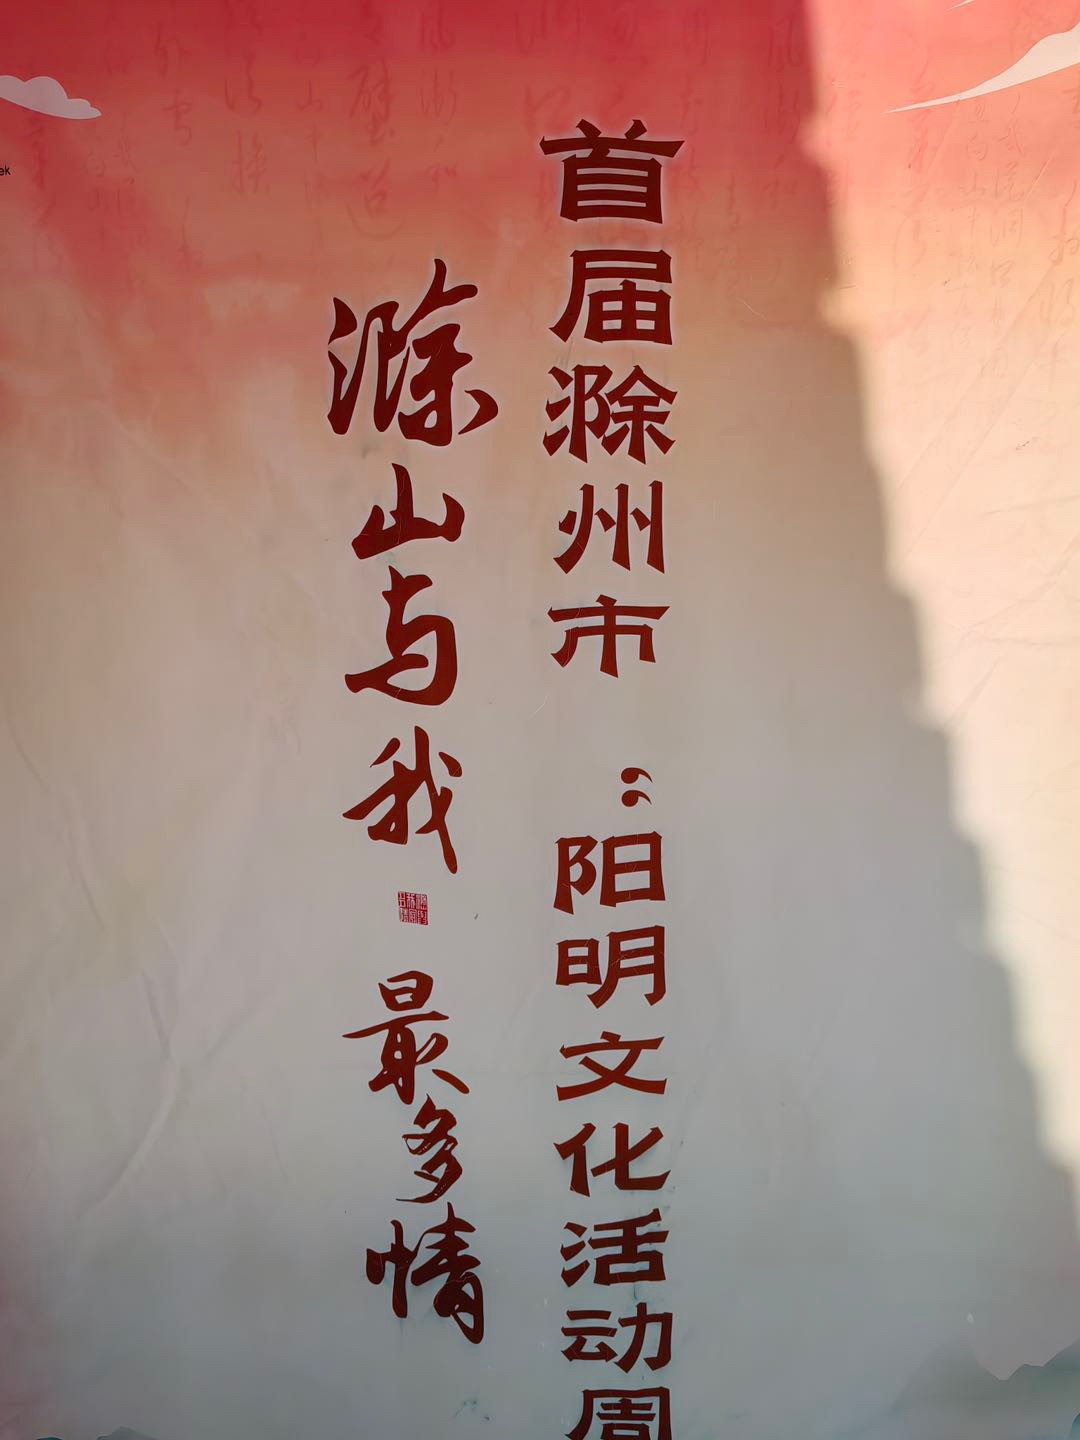 首届滁州市“阳明文化活动周
滁山与我
最多情
ek